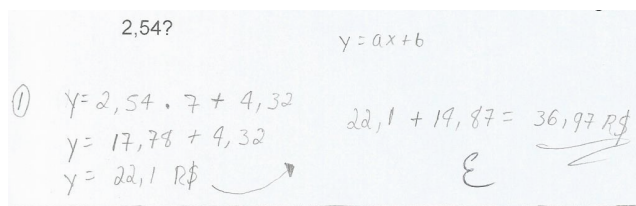 2,54?
y = ax + b
① y = 2,54 . 7 + 4,32
y = 17,78 + 4,32
y = 22,1 R$
22,1 + 14,87 = 36,97 R$